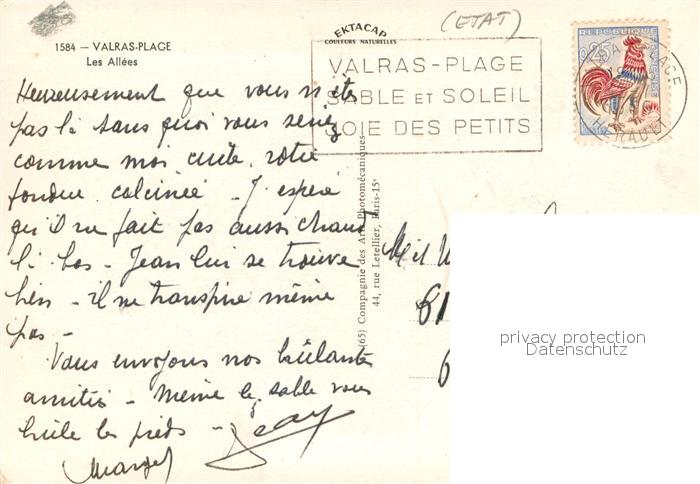 1584 — VALRAS-PLAGE
Les Allées
EKTACAP
COULEURS NATURELLES
(ETAT)
VALRAS-PLAGE
SABLE ET SOLEIL
JOIE DES PETITS
REPUBLIQUE
0,25
PLAGE
HERAULT
Heureusement que vous n'êtes
pas là sans quoi vous seriez
comme moi cuite, rotie
fondue calcinée - J'espère
qu'il ne fait pas aussi chaud
là bas - Jean Lui se trouve
bien - il ne transpire même
pas -
Vous envoyons nos brûlantes
amitiés - Même le sable vous
brûle les pieds -
(65) Compagnie des Arts Photomécaniques
44, rue Letellier, Paris-15e
M et M
61
6
privacy protection
Datenschutz